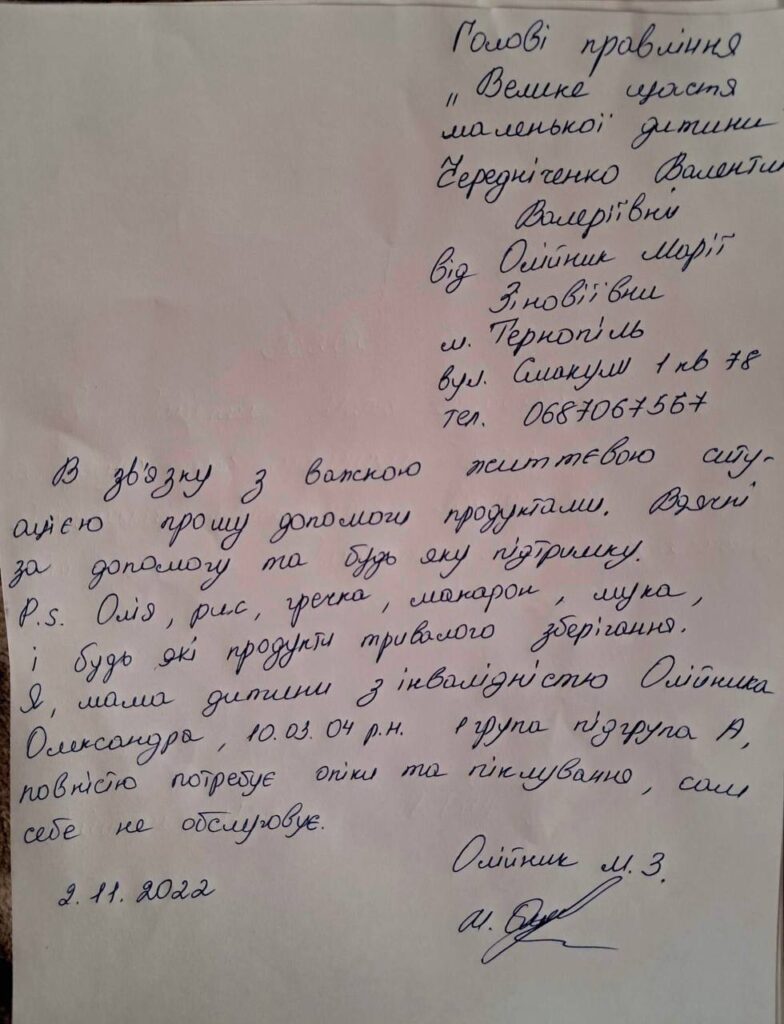 Голові правління
„Велике щастя
маленької дитини
Чередніченко Валентин
Валеріївни
від Олійник Марії
Зіновіївни
м. Тернопіль
вул. Смакули 1 кв 78
тел. 0687067567
В зв'язку з важкою життєвою ситу-
ацією прошу допомоги продуктами. Вдячні
за допомогу та будь яку підтримку.
P.s. Олія, рис, гречка, макарон, мука,
і будь які продукти тривалого зберігання.
Я, мама дитини з інвалідністю Олійника
Олександра, 10.03.04 р.н. 1 група підгрупа А,
повністю потребує опіки та піклування, сам
себе не обслуговує.
Олійник М.З.
2.11.2022